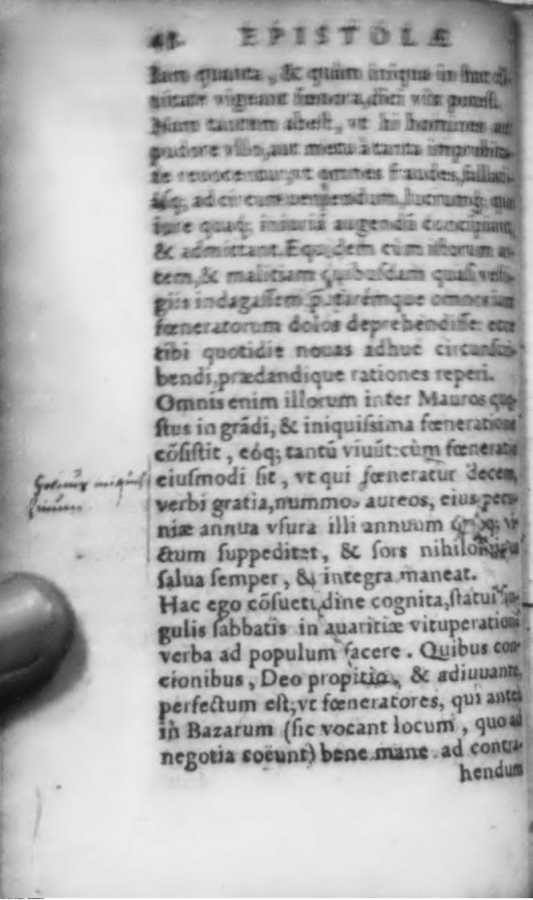 48. EPISTOLÆ
quanta, & quàm in
vigeant fœnora, dici vix potest.
Nam tantum abest, vt hi homines aut
pudore vllo, aut metu à tanta improbita-
te reuocentur, vt omnes fraudes, fallaci-
ásq; ad circumueniendum, lucrumq; qua
iure quaq; iniuriâ augendū concipiant,
& admittant. Equidem cùm istorum ar-
tem, & malitiam quibusdam quasi vesti-
giis indagassem putarémque omnes iam
fœneratorum dolos deprehendisse: ecce
tibi quotidie nouas adhuc circunscri-
bendi, prædandique rationes reperi.
Omnis enim illorum inter Mauros quæ-
stus in grādi, & iniquissima fœneratione
cōsistit, eóq; tantū viuūt: cùm fœneratio
eiusmodi sit, vt qui fœneratur decem,
verbi gratia, nummos aureos, eius pecu-
niæ annua vsura illi annuum vi-
ctum suppeditet, & sors nihilominus
salua semper, & integra maneat.
Hac ego cōsuetudine cognita, statui sin-
gulis sabbatis in auaritiæ vituperationē
verba ad populum facere. Quibus con-
cionibus, Deo propitio, & adiuuante,
perfectum est, vt fœneratores, qui antea
in Bazarum (sic vocant locum, quo ad
negotia coëunt) bene mane ad contra-
hendum